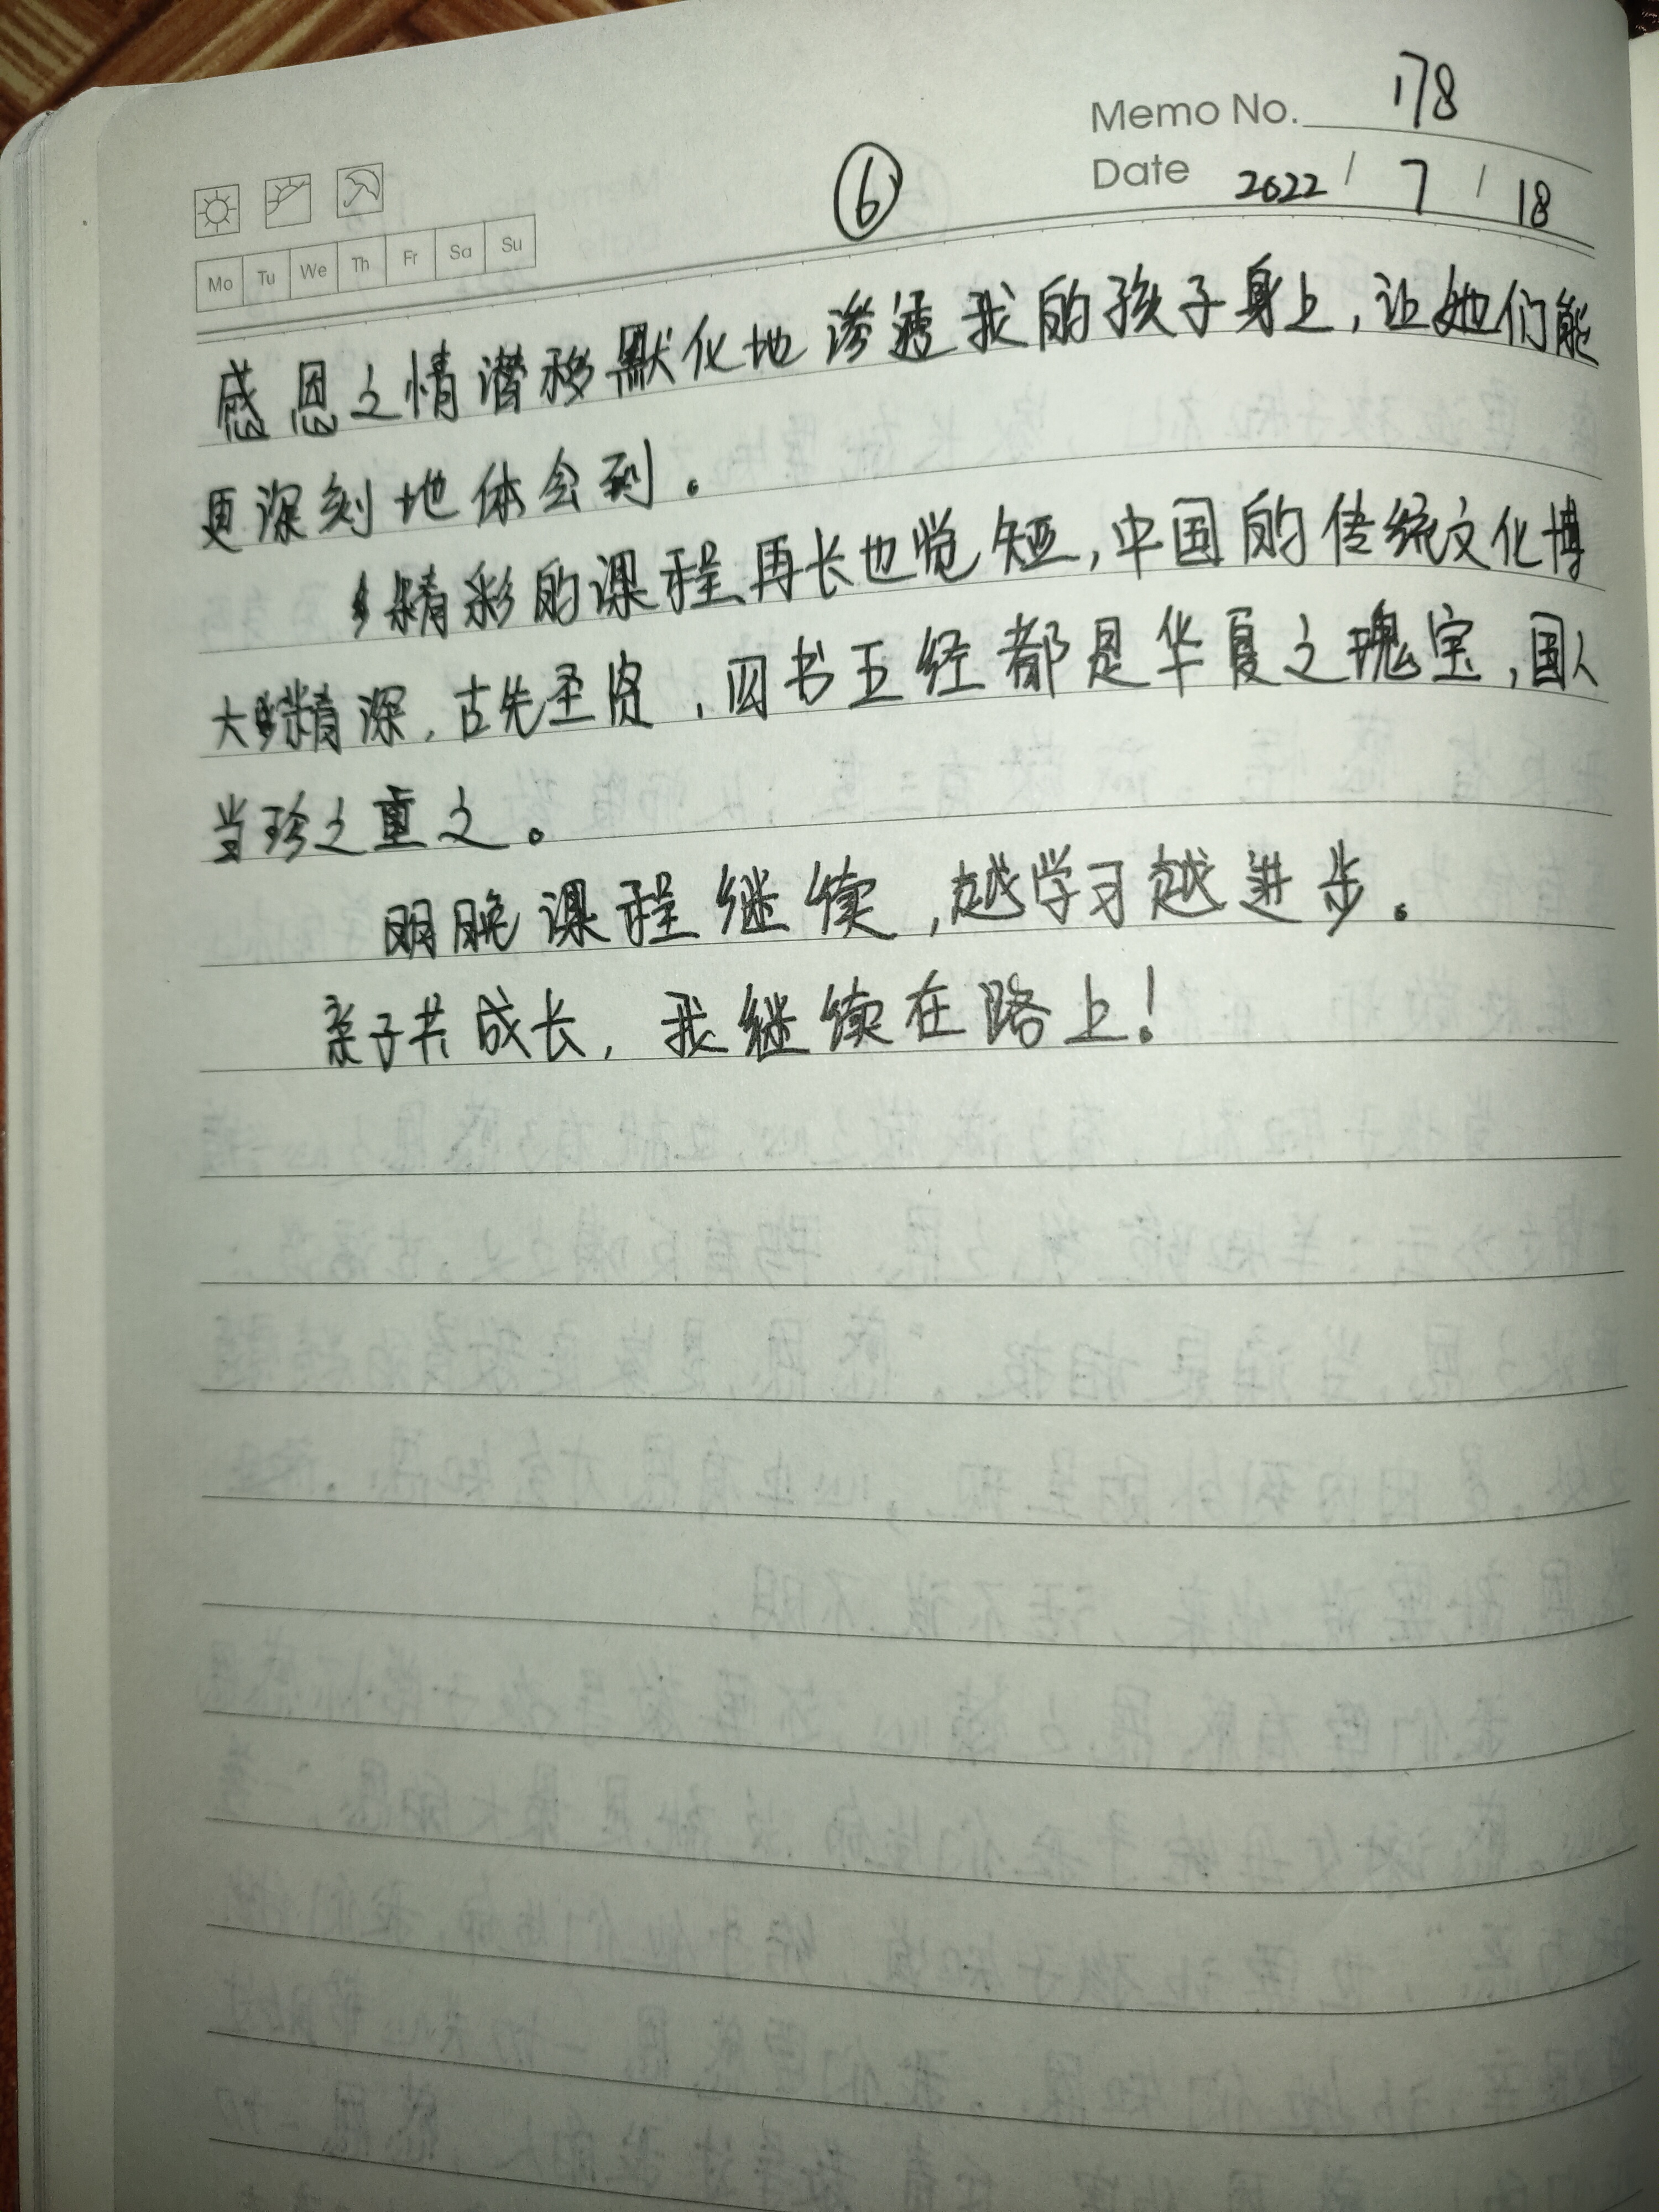 Memo No. 178
⑥
Date 2022 / 7 / 18
Mo Tu We Th Fr Sa Su
感恩之情潜移默化地渗透我的孩子身上,让她们能
更深刻地体会到。
精彩的课程再长也觉短,中国的传统文化博
大精深,古先圣贤,四书五经都是华夏之瑰宝,国人
当珍之重之。
明晚课程继续,越学习越进步。
亲子共成长,我继续在路上!